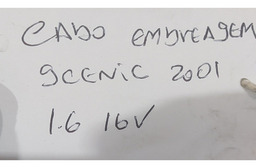 CABO EMBREAGEM
SCENIC 2001
1.6 16V